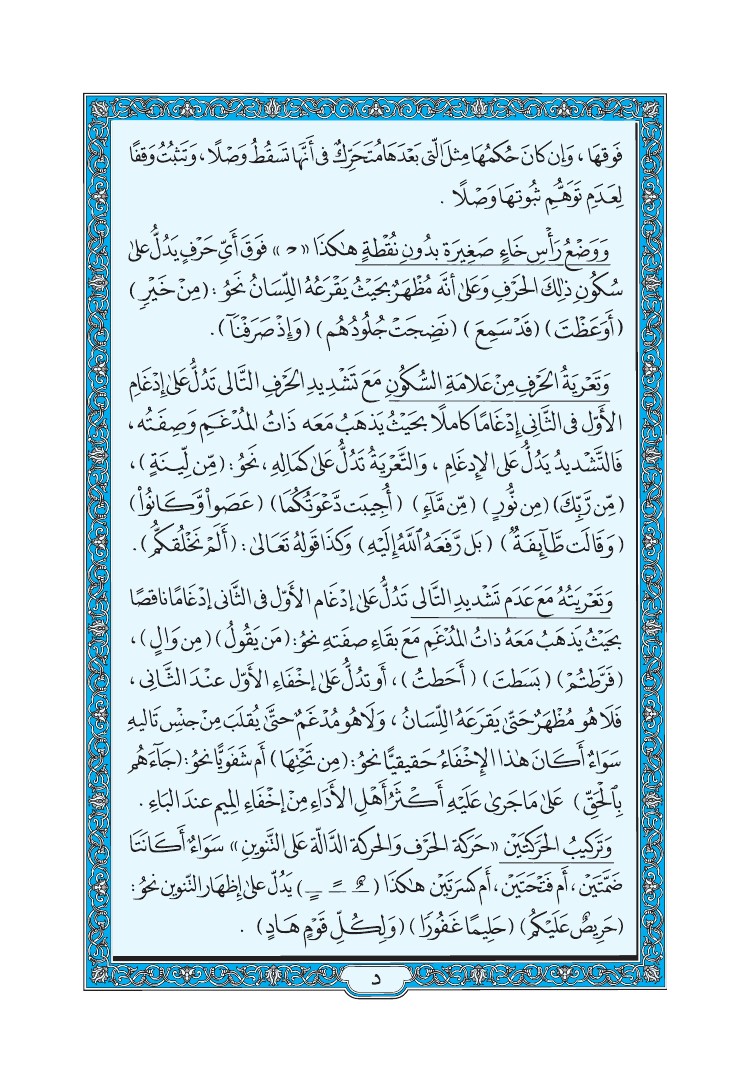 فَوقهَا ، وَإن كانَ حُكمُهَا مِثلَ الّتى بَعْدَهَا مُتَحَرِّكٌ فى أَنَّهَا تَسقُطُ وَصْلًا ، وَتَثبُتُ وَقفًا
لِعَدَمِ تَوَهُّمِ ثُبُوتهَا وَصْلًا .
وَوَضْعُ رَأْسِ خَاءٍ صَغِيرَة بِدُونِ نُقْطَةٍ هٰكَذَا « حـ » فوقَ أَيِّ حَرْفٍ يَدُلُّ عَلىٰ
سُكُونِ ذٰلِكَ الحَرْفِ وَعَلىٰ أَنَّه مُظْهَرٌ بِحَيْثُ يَقْرَعُهُ اللِّسَانُ نَحوُ : (مِنۡ خَيۡرٖ)
(أَوَعَظۡتَ) (قَدۡ سَمِعَ) (نَضِجَتۡ جُلُودُهُم) (وَإِذۡ صَرَفۡنَآ) .
وَتَعْرِيَةُ الحَرْفِ مِنْ عَلامَةِ السُّكُونِ مَعَ تَشْدِيدِ الحَرْفِ التَّالى تَدُلُّ عَلىٰ إِدْغَامِ
الأوّل فى الثَّانِى إِدْغَامًا كاملًا بِحَيْثُ يَذهَبُ مَعَه ذَاتُ المُدْغَمِ وَصِفَتُه ،
فَالتَّشْدِيدُ يَدُلُّ عَلى الإِدغَامِ ، وَالتَّعْرِيَةُ تَدُلُّ عَلىٰ كَمَالِهِ ، نَحْوُ : (مِّن لِّينَةٍ) ،
(مِّن رَّبِّكَ) (مِن نُّورٍ) (مِّن مَّآءٖ) (أُجِيبَت دَّعۡوَتُكُمَا) (عَصَواْ وَّكَانُواْ)
(وَقَالَت طَّآئِفَةٞ) (بَل رَّفَعَهُ ٱللَّهُ إِلَيۡهِ) وَكَذا قَولُهُ تَعَالىٰ : (أَلَمۡ نَخۡلُقكُّم) .
وَتَعْرِيَتُهُ مَعَ عَدَم تَشْديدِ التَّالى تَدُلُّ عَلىٰ إدغَام الأَوّل فى الثَّانى إدغَامًا ناقصًا
بِحَيْثُ يَذهَبُ مَعَهُ ذاتُ المُدْغَمِ مَعَ بقَاءِ صِفَتهِ نَحوُ : (مَن يَقُولُ) (مِن وَالٍ) ،
(فَرَّطتُمۡ) (بَسَطتَ) (أَحَطتُ) ، أَو تدُلُّ عَلىٰ إخْفَاءِ الأوّل عندَ الثَّانِى ،
فَلا هُو مُظْهَرٌ حَتّىٰ يَقرَعَهُ اللِّسَانُ ، وَلَا هُو مُدْغَمٌ حتَّىٰ يُقلَبَ مِنْ جِنْسِ تَاليهِ
سَوَاءٌ أَكَانَ هٰذا الإِخْفَاءُ حَقِيقيًّا نحوُ : (مِن تَحۡتِهَا) أَم شَفَوِيًّا نحوُ : (جَآءَهُم
بِٱلۡحَقِّ) عَلىٰ مَا جَرىٰ عَلَيْهِ أَكْثَرُ أَهْلِ الأَدَاءِ مِنْ إخْفَاءِ المِيمِ عندَ البَاءِ .
وَتَركيبُ الحَرَكَتَيْنِ «حَرَكَة الحَرْف وَالحركَة الدَّالّة عَلى التَّنوينِ» سَوَاءٌ أَكَانَتَا
ضَمَّتَيْن ، أَم فَتْحَتَيْنِ ، أَم كَسْرَتَيْن هٰكَذَا ( ـٌ ـً ـٍ ) يَدُلّ عَلىٰ إظهَار التّنوينِ نَحوُ :
(حَرِيصٌ عَلَيۡكُم) (حَلِيمًا غَفُورٗا) (وَلِكُلِّ قَوۡمٍ هَادٍ) .
د